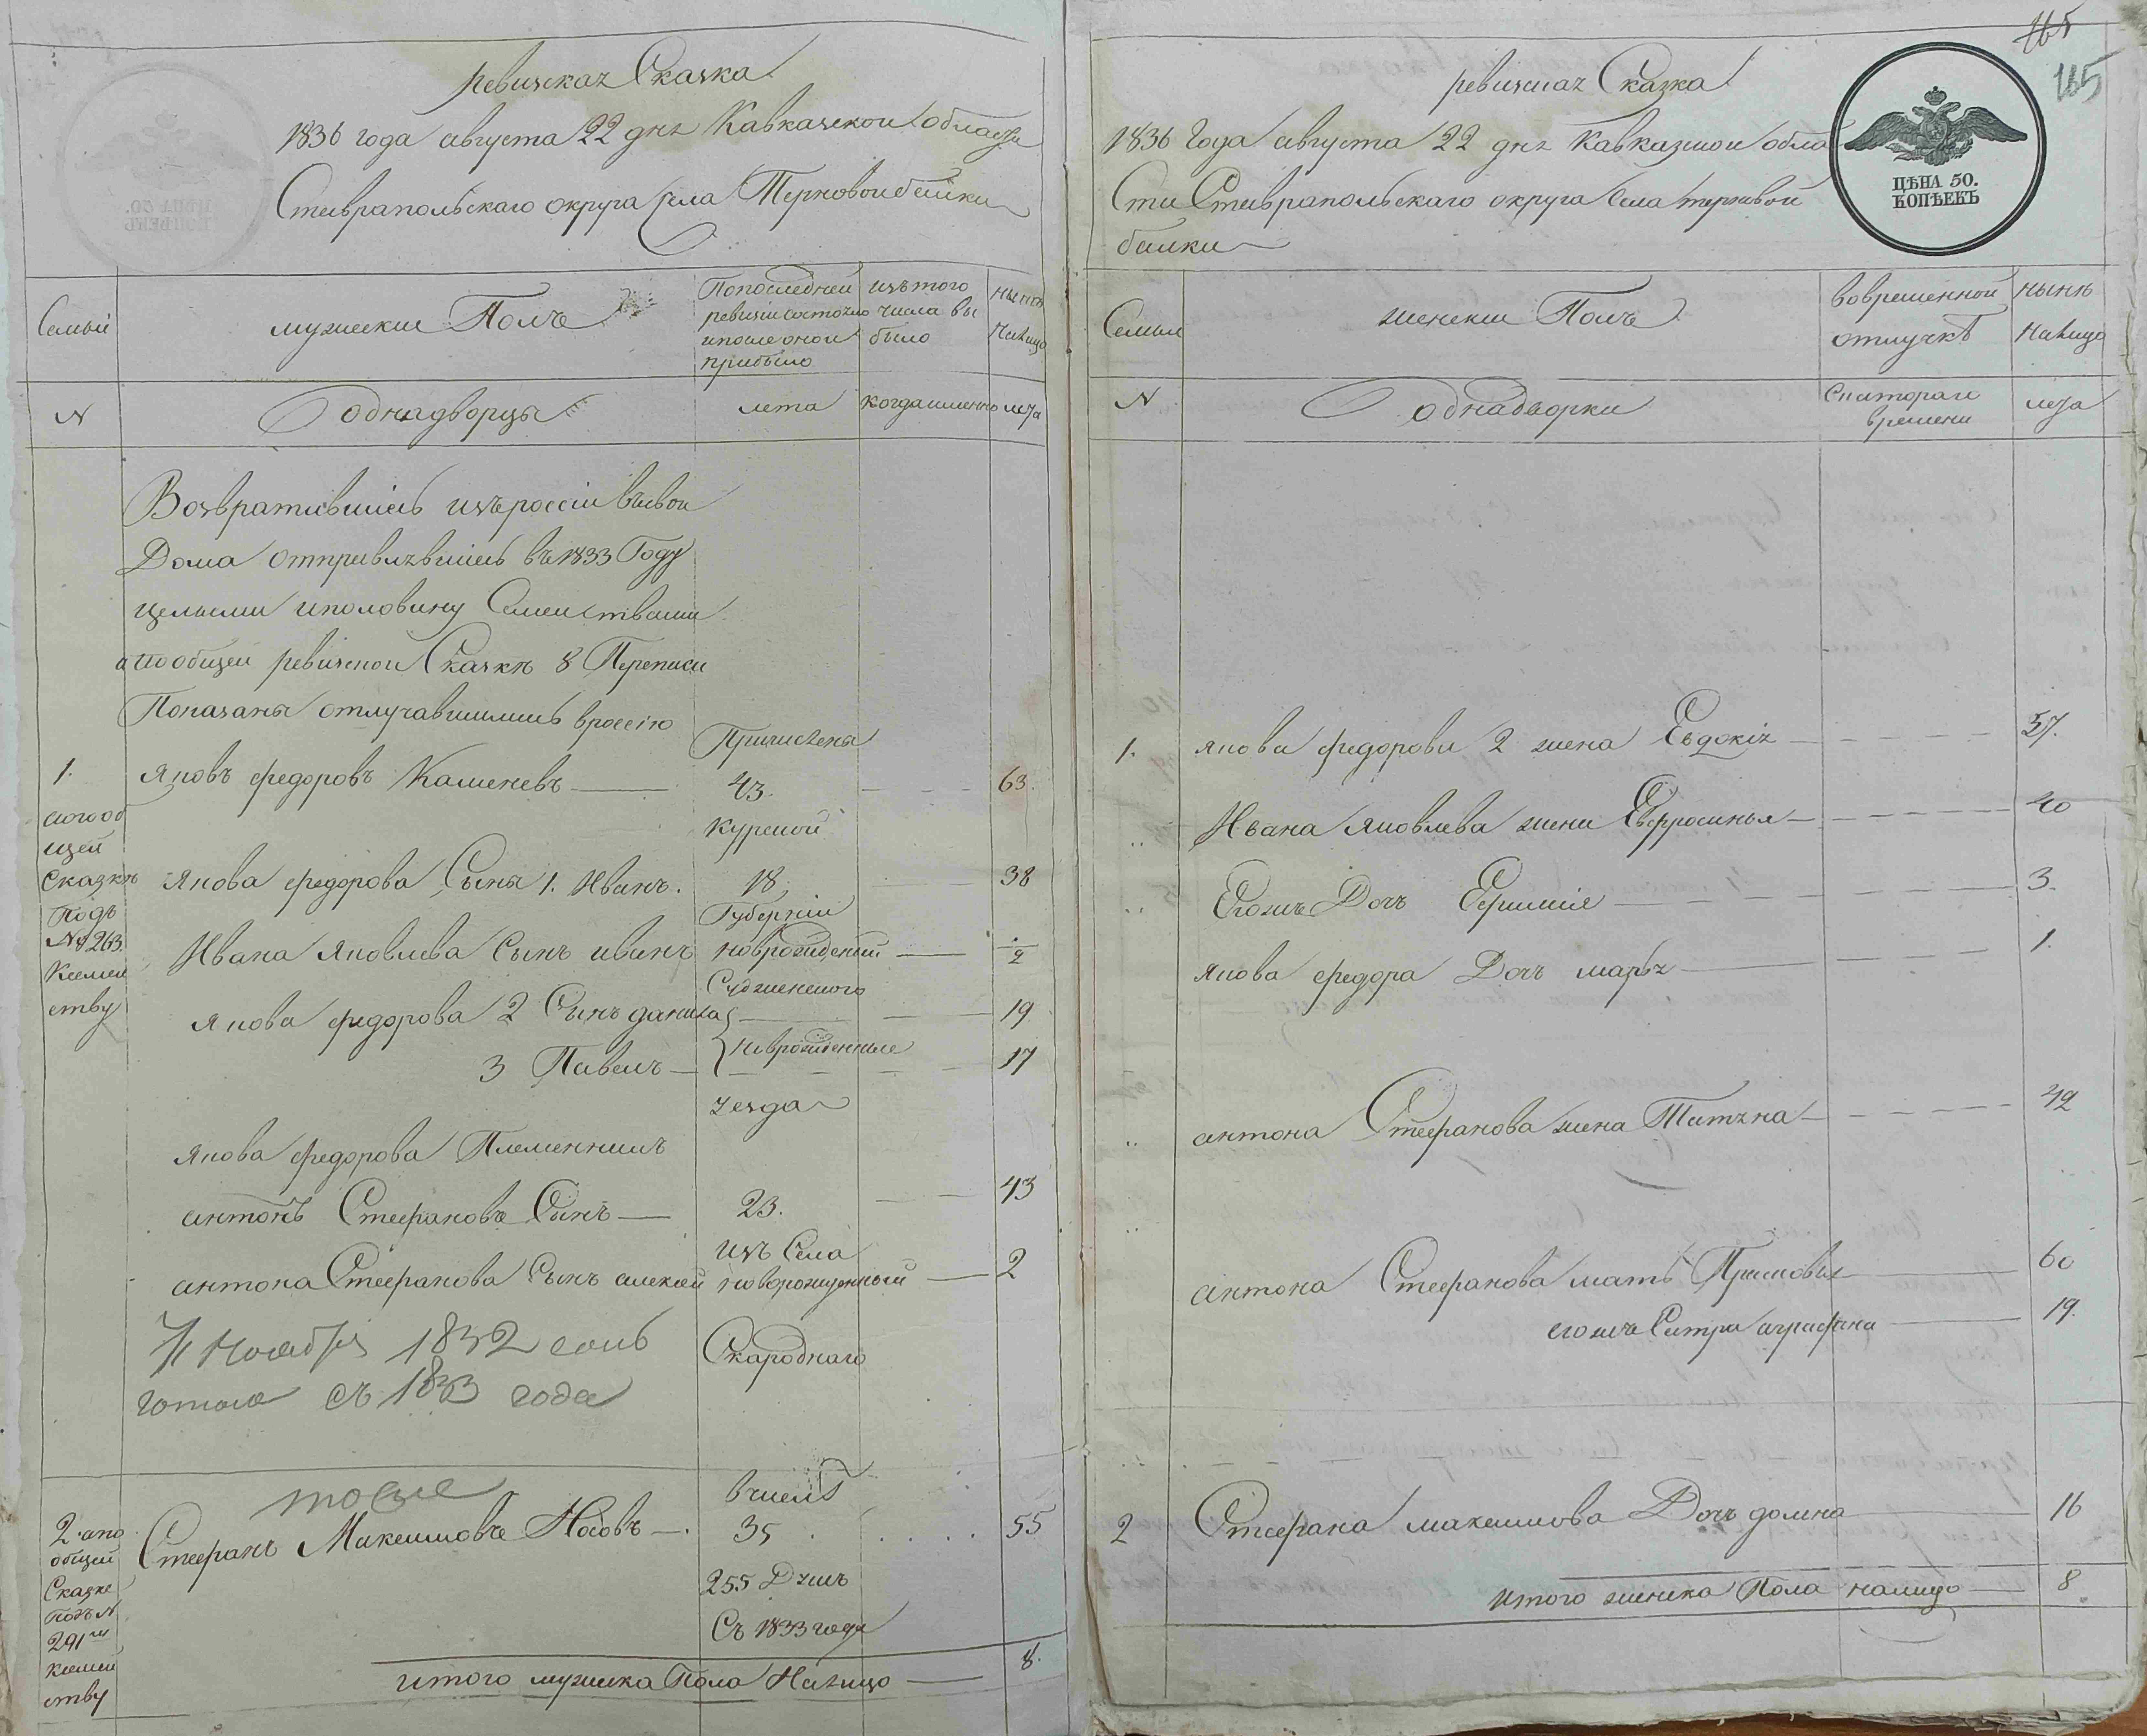 ревизская Сказка
1836 года августа 22 дня Кавказской области
Ставропольскаго округа села Терновой балки
Семьи
мужеский Полъ
По последней ревизии состояло и после оной прибыло
изъ того числа выбыло
ныне налицо
N
однадворцы
лета
когда именно
лета
Возвратившиесь изъ россіи въ свои
Дома отправлявшиесь въ 1833 Году
целыми и половину Семействами
а по общей ревизской Сказке 8 Переписи
Показаны отлучавшимись в россію
Причислены
1. Яковъ федоровъ Каменевъ 43. 63.
а по общей Сказке Подъ № 263. К семейству
Курской
Якова федорова Сыны 1. Иванъ. 18. 38
Губерніи
Ивана Яковлева Сынъ иванъ новорожденный 1/2
Суджанскаго
Якова федорова 2 Сынъ данила 19
3 Павелъ новорожденные 17
уезда
Якова федорова Племянникъ
антонъ Стефановъ Сынъ 23. 43
изъ Села
антона Стефанова Сынъ алексей новорожденный 2
Скароднаго
ноября 1832
съ 1833 года
тоже
в числе
2. а по общей Сказке подъ N 291 к семейству
Стефанъ Максимовъ Носовъ 35 55
255 Душъ
Съ 1833 года
итого мужска Пола Налицо 8.
165
165
ревизская Сказка
1836 Года августа 22 дня Кавказской обла
сти Ставропольскаго округа Села терновой
балки
ЦѢНА 50. КОПѢЕКЪ
Семьи
женский Полъ
во временной отлучкѣ
нынѣ налицо
N
однадворки
с котораго времени
лета
1. якова федорова 2 жена Евдокія 57.
Ивана Яковлева жена Евфросинья 40
Егожъ Дочь Ефимия 3.
якова федора Дочь марья 1.
антона Стефанова жена Татяна 42
антона Стефанова мать Прасковья 60
егожъ Сестра аграфена 19.
2 Стефана максимова Дочь домна 16
итого женска Пола налицо 8